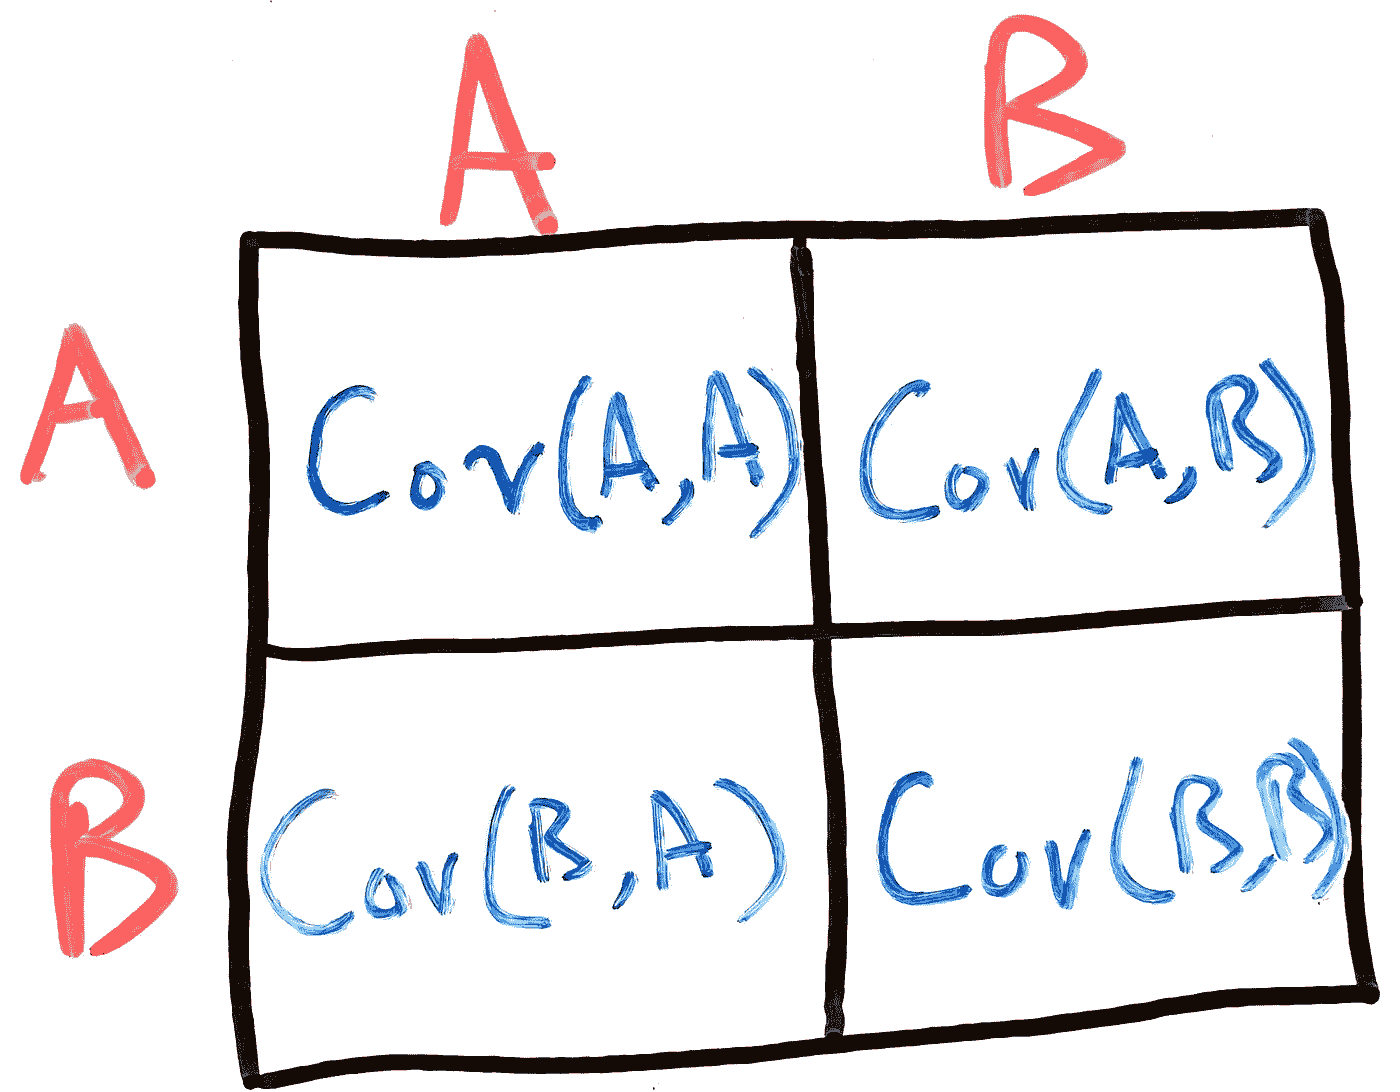 A B
A Cov(A,A) Cov(A,B)
B Cov(B,A) Cov(B,B)